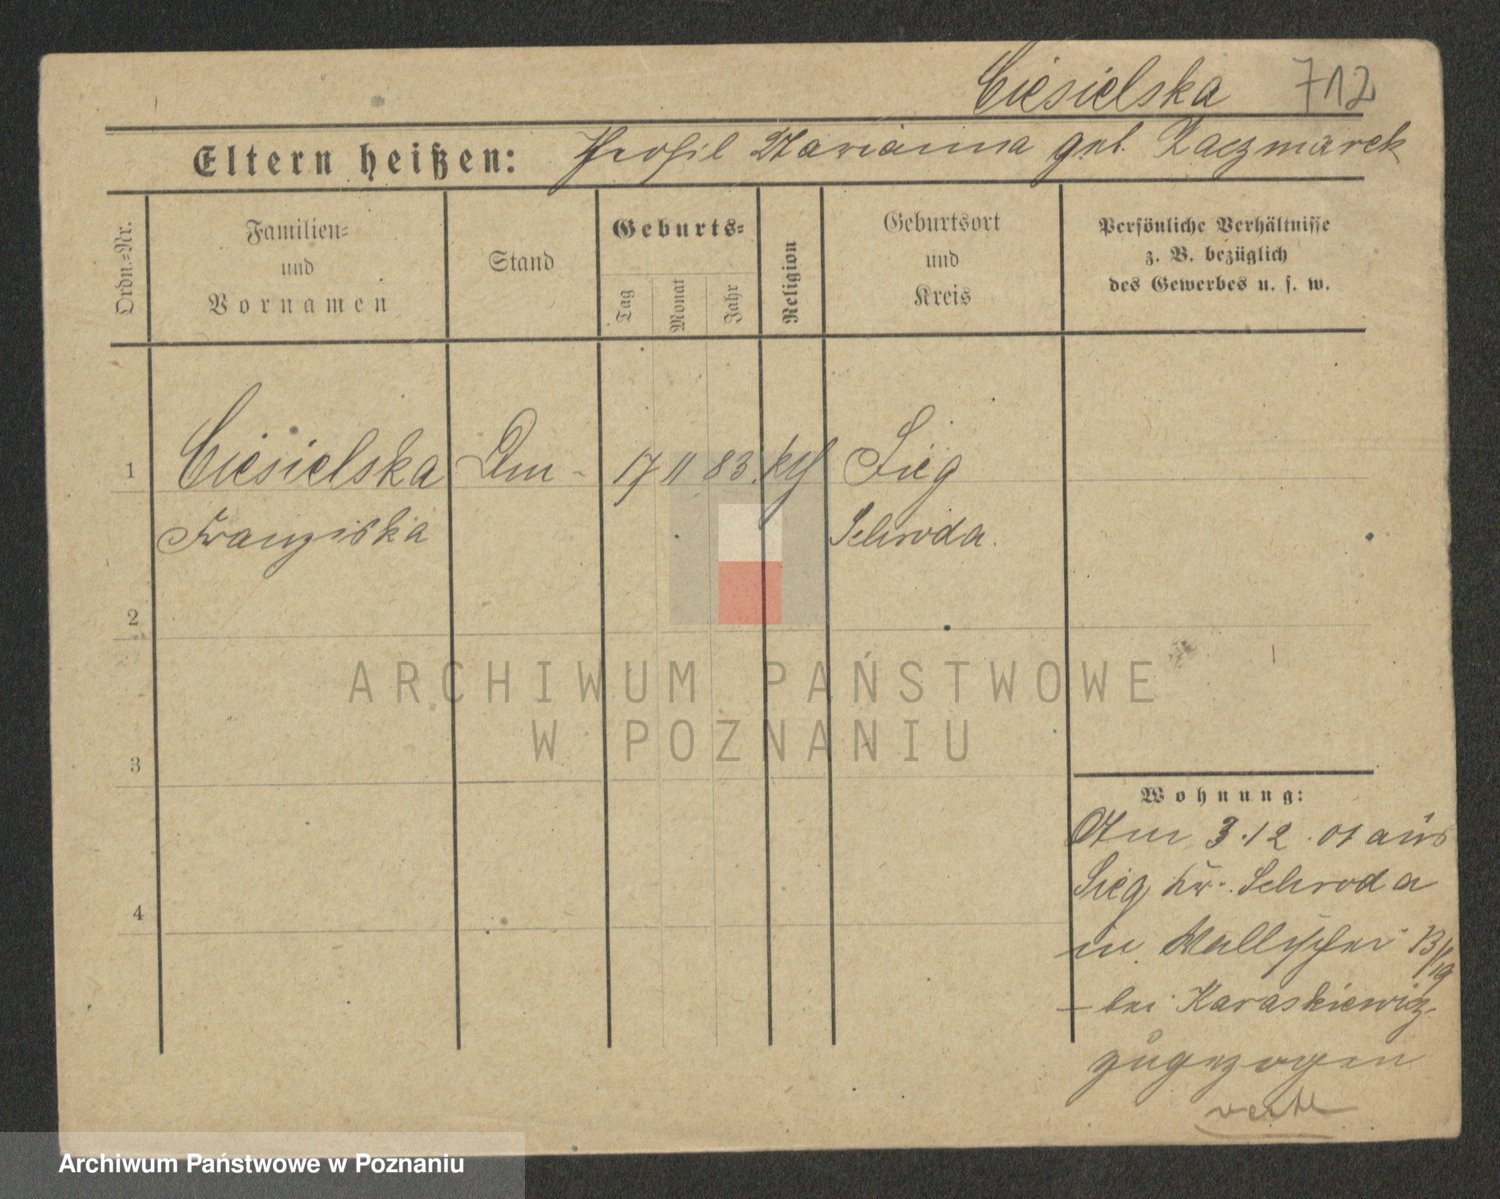 Ciesielska 712
Eltern heißen: Profil Marianna geb. Kaczmarek
Ordn.=Nr.
Familien=
und
Vornamen
Stand
Geburts=
Tag
Monat
Jahr
Religion
Geburtsort
und
Kreis
Persönliche Verhältnisse
z. B. bezüglich
des Gewerbes u. s. w.
1 Ciesielska 17 11 83. kth Sieg
Franziska Schroda.
2
3
4
ARCHIWUM PAŃSTWOWE
W POZNANIU
Wohnung:
Am 3.12.01 aus
Sieg Kr. Schroda
in Wallischei
bei Karaskiewicz
zugezogen
verte
Archiwum Państwowe w Poznaniu